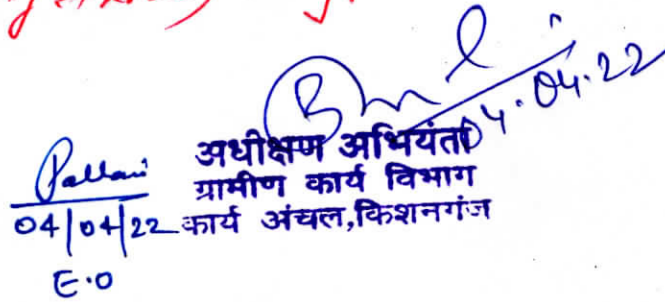 04.04.22
Pallavi
04/04/22
E.O
अधीक्षण अभियंता
ग्रामीण कार्य विभाग
कार्य अंचल,किशनगंज